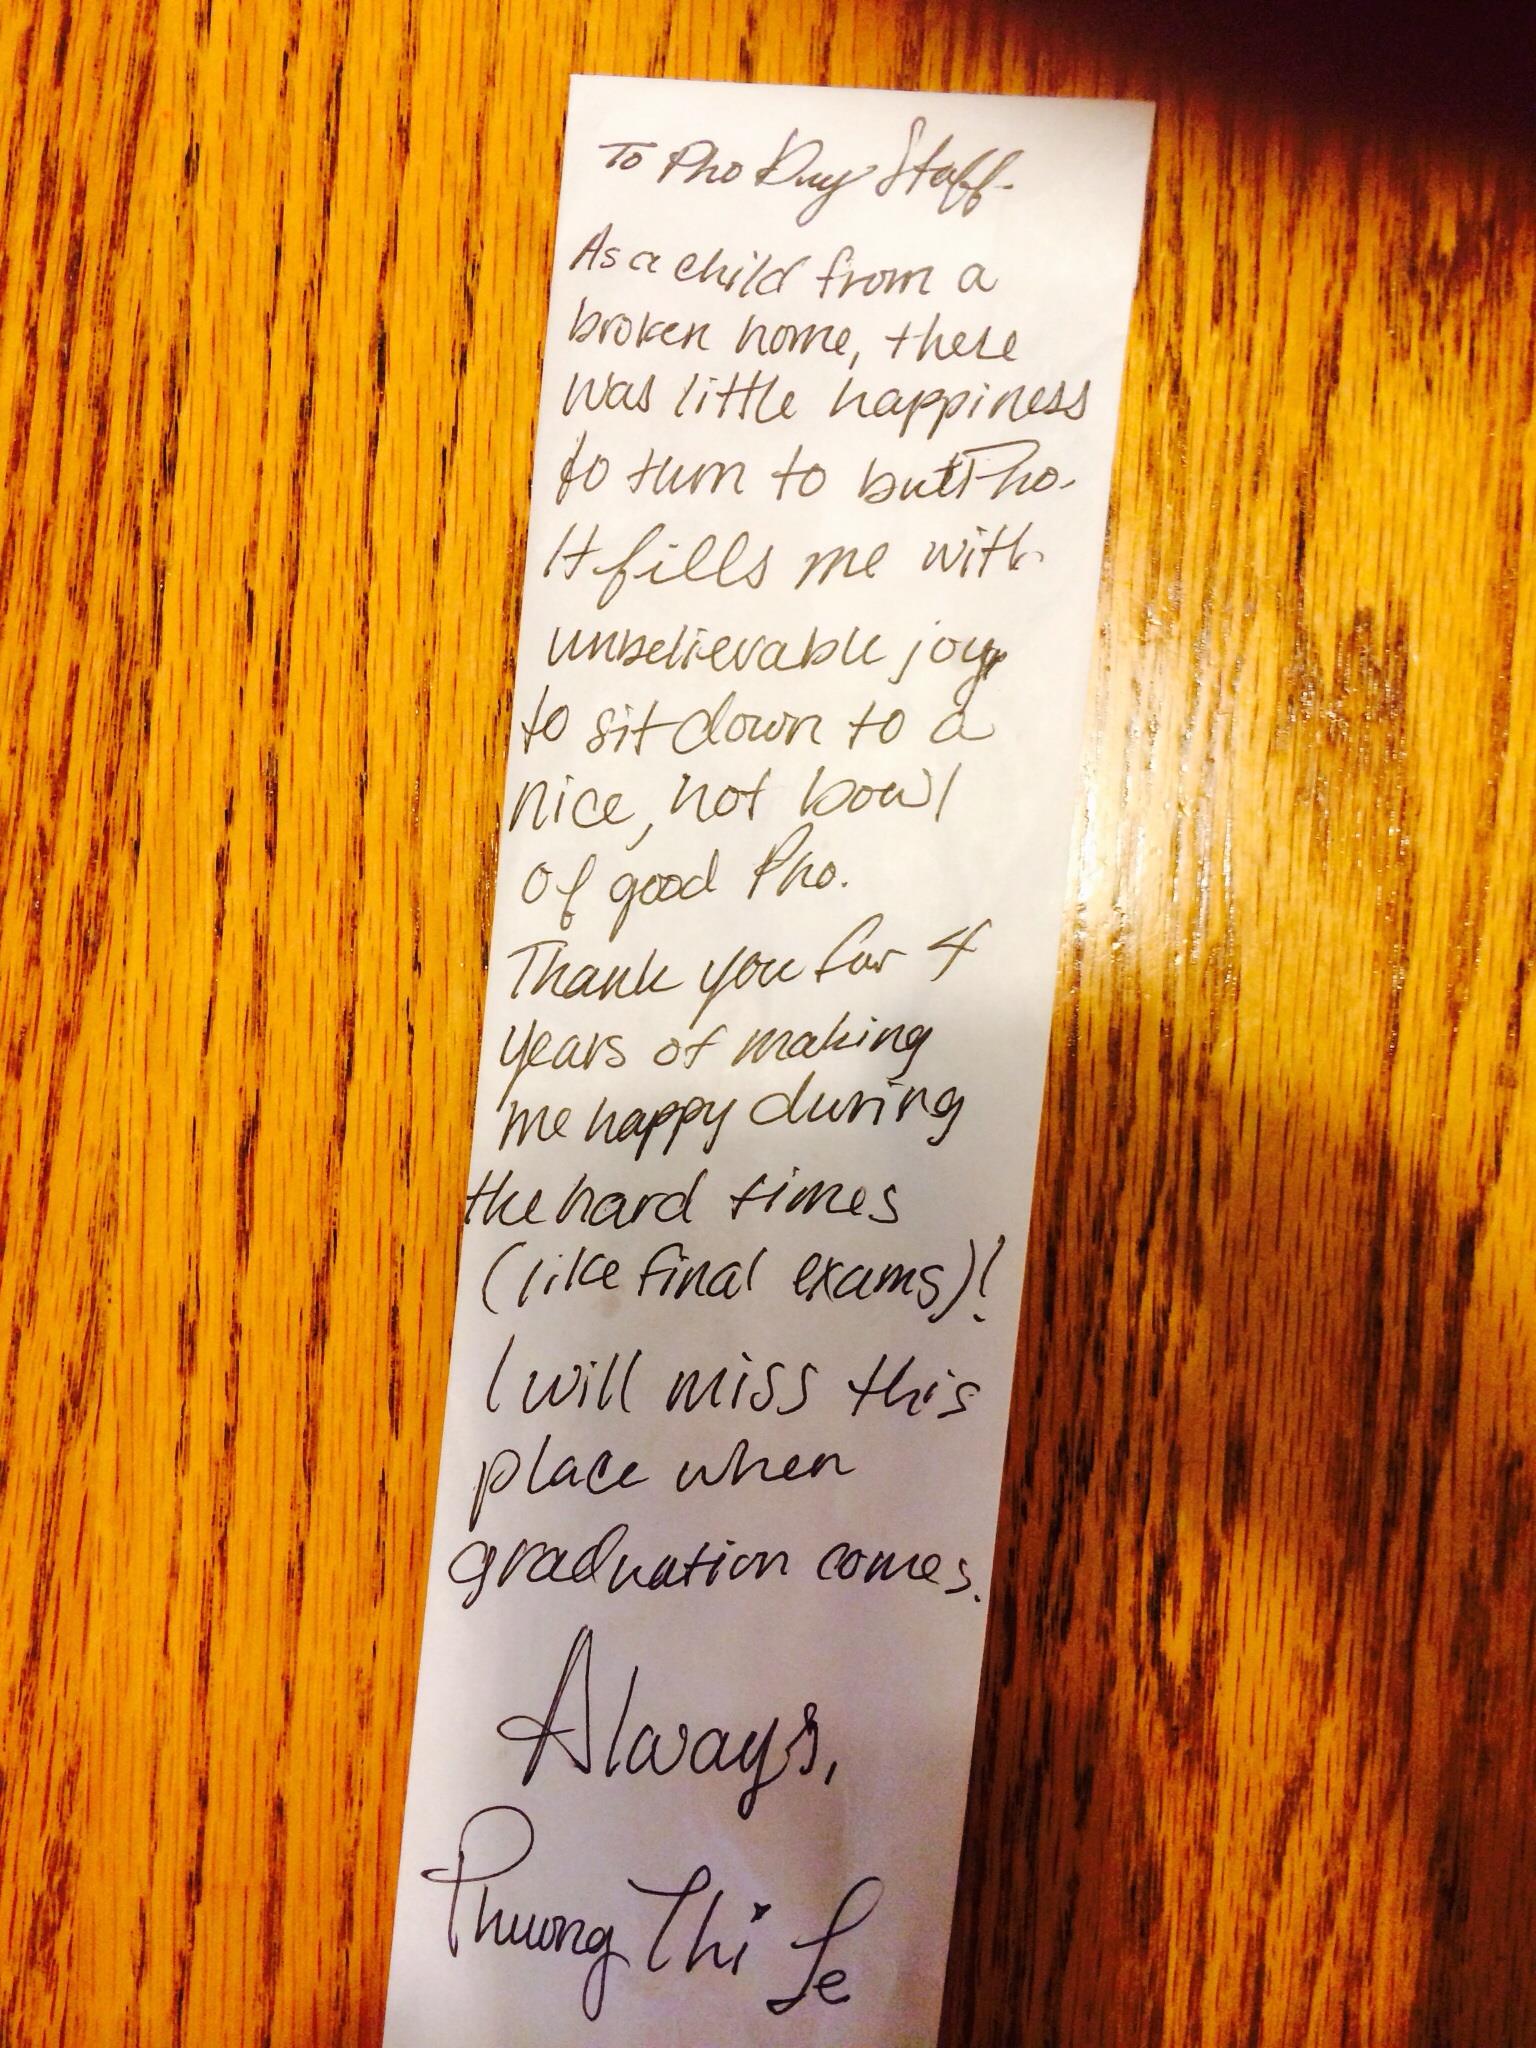 To Pho Duy Staff.
As a child from a
broken home, there
was little happiness
to turn to but Pho.
It fills me with
unbelievable joy
to sit down to a
nice, hot bowl
of good Pho.
Thank you for 4
years of making
me happy during
the hard times
(like final exams)!
I will miss this
place when
graduation comes.
Always,
Phuong Thi Le